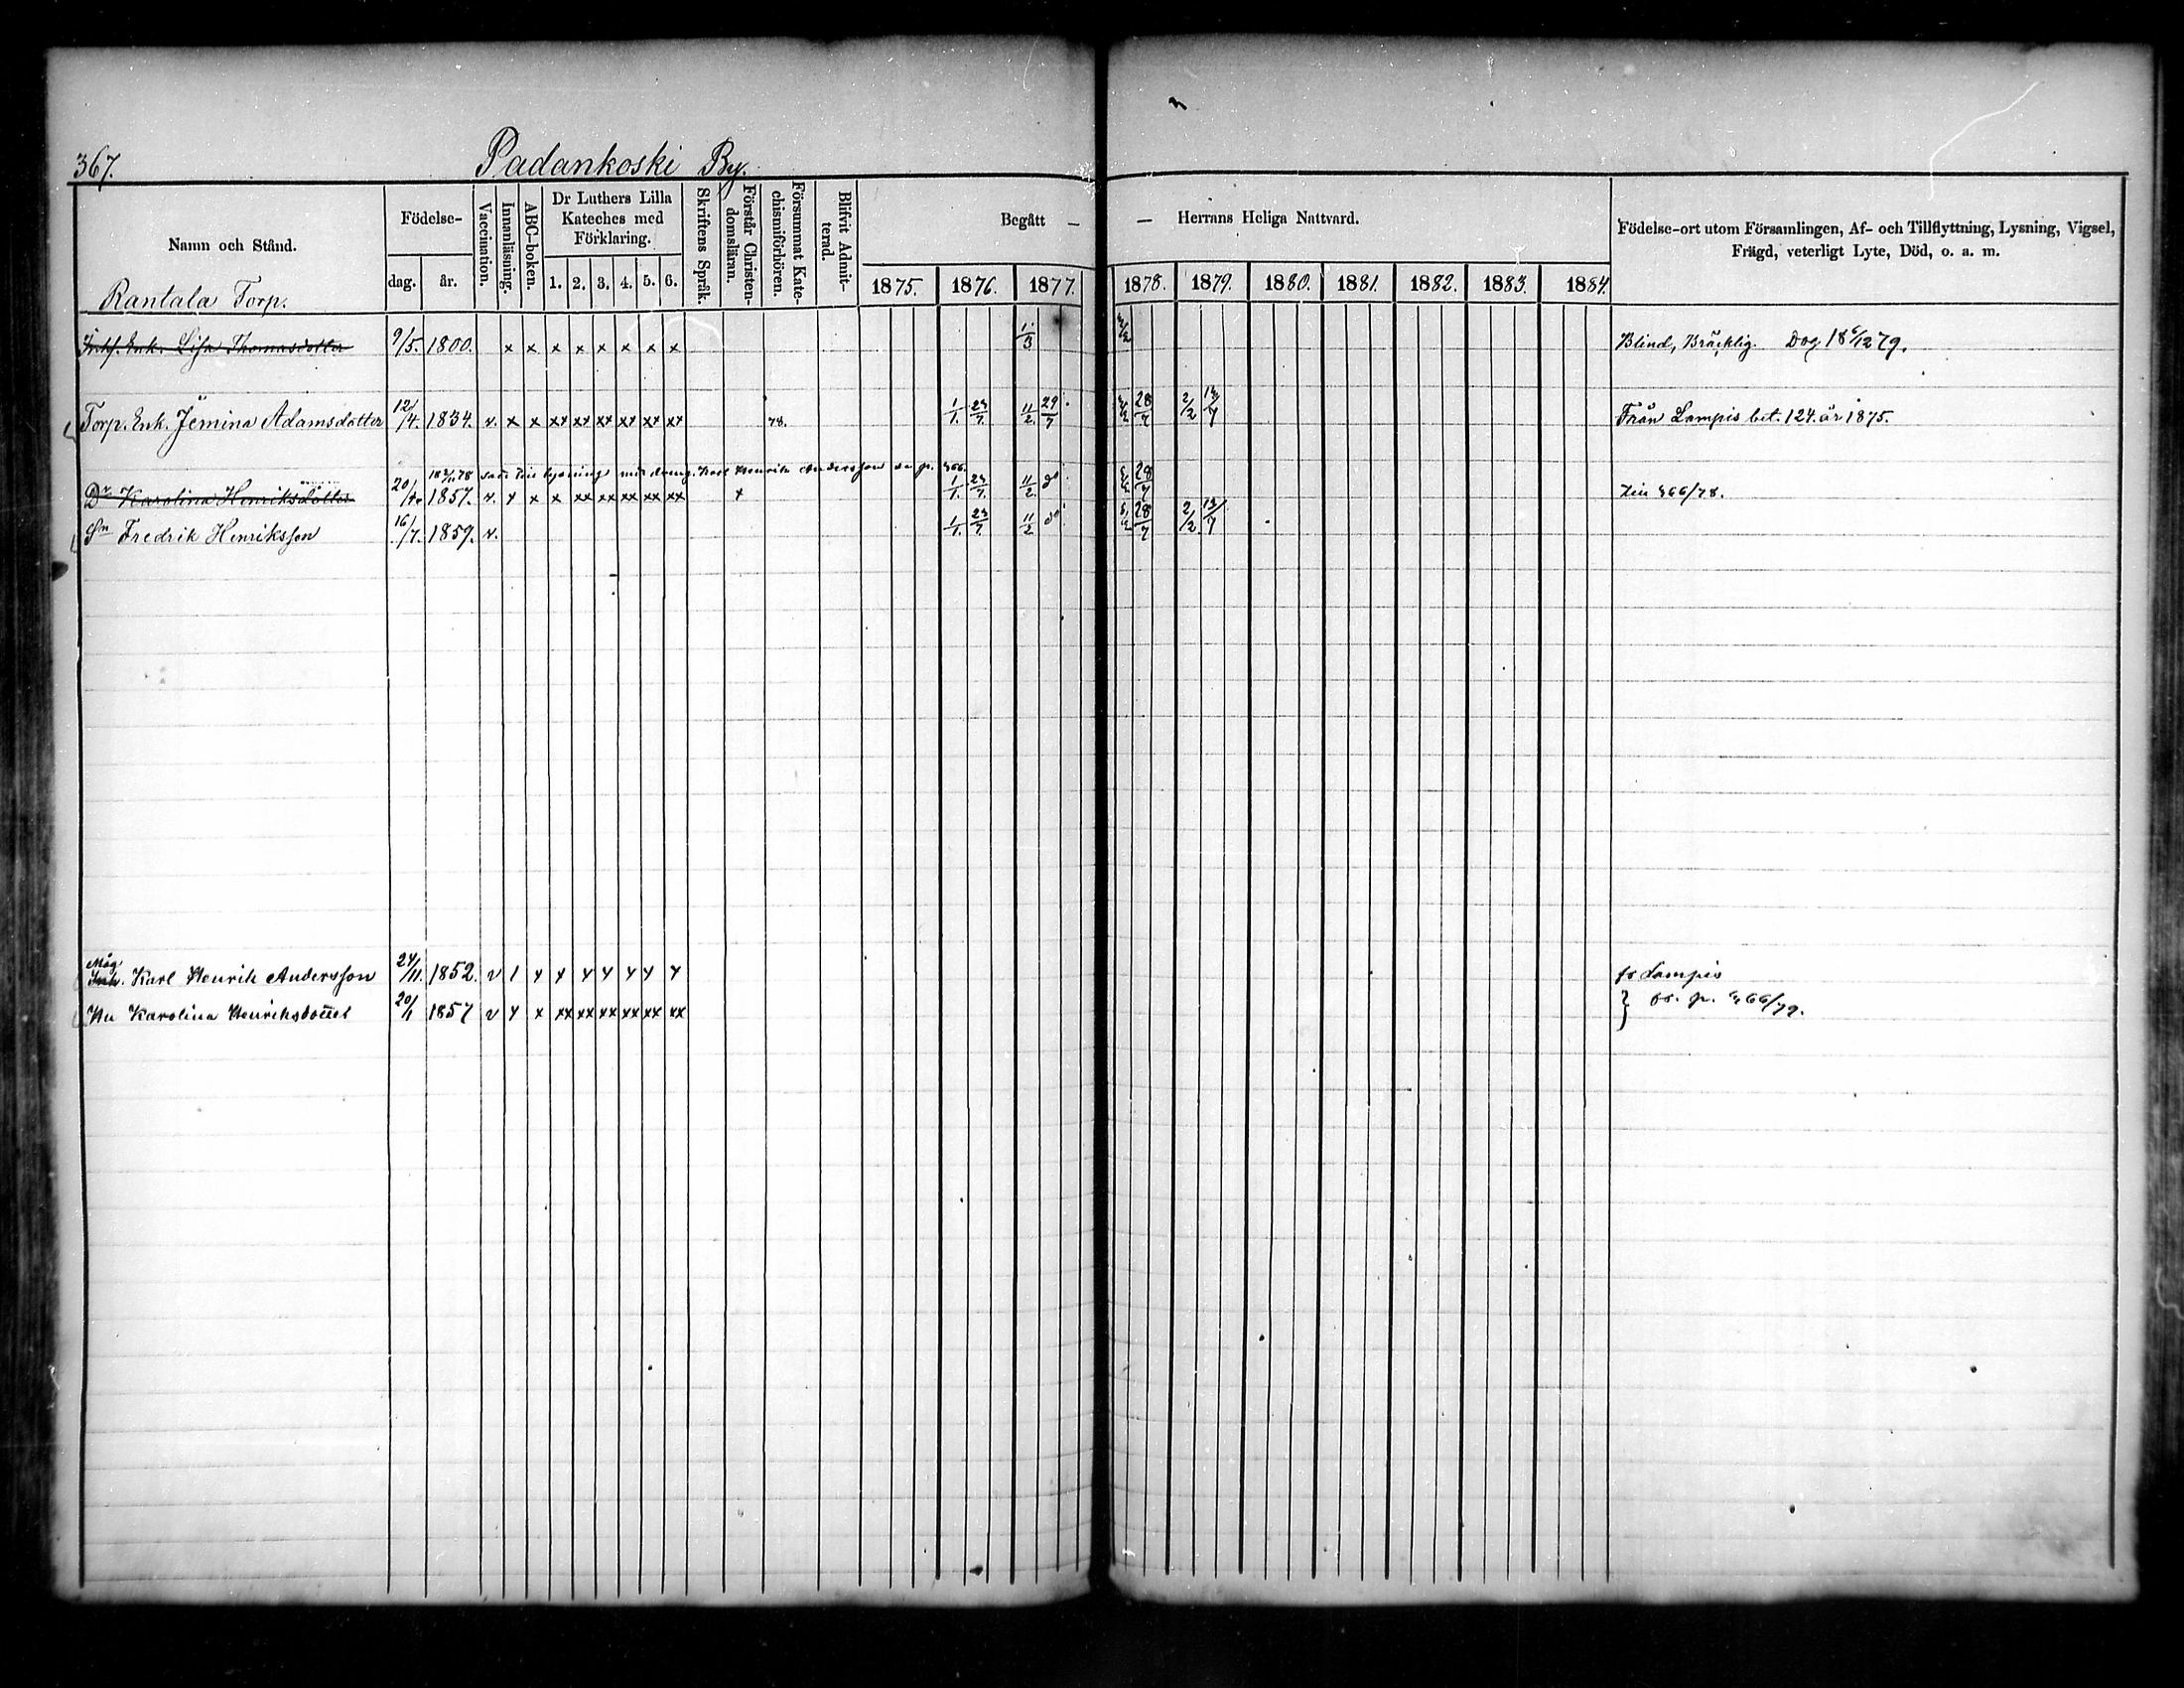 367.
Padankoski By.
Namn och Stånd.
Födelse-
dag. år.
Vaccination.
Innanläsning.
ABC-boken.
Dr Luthers Lilla Kateches med Förklaring.
1. 2. 3. 4. 5. 6.
Skriftens Språk.
Förstår Christen-domsläran.
Försummat Kate-chismiförhören.
Blifvit Admit-terad.
Begått — — Herrans Heliga Nattvard.
1875. 1876. 1877. 1878. 1879. 1880. 1881. 1882. 1883. 1884.
Födelse-ort utom Församlingen, Af- och Tillflyttning, Lysning, Vigsel,
Frägd, veterligt Lyte, Död, o. a. m.
Rantala Torp.
Enk. Lisa Thomasdotter 9/5. 1800. x x x x x x x x 1/3 Blind, Bräcklig. Dog 18 6/12 79.
Torp. Enk. Jemina Adamsdotter 12/4. 1834. v. x x xx xx xx xx xx xx 78. 1/1. 23/7. 11/2 29/7 28/7 2/2 13/7 Från Lampis bet. 124. år 1875.
lysning med dräng. Karl Henrik Andersson
Dr Karolina Henriksdotter 20/1. 1857. v. x x x xx xx xx xx xx x 1/1. 23/7. 11/2 do 28/7 366/78.
Sn Fredrik Henriksson 16/7. 1859. v. 1/1. 23/7. 11/2 do 28/7 2/2 13/7
Måg
Karl Henrik Andersson 24/11. 1852. v x x x x x x x fr Lampis
Hu Karolina Henriksdotter 20/1 1857 v x x xx xx xx xx xx xx } fr. p. 366/79.